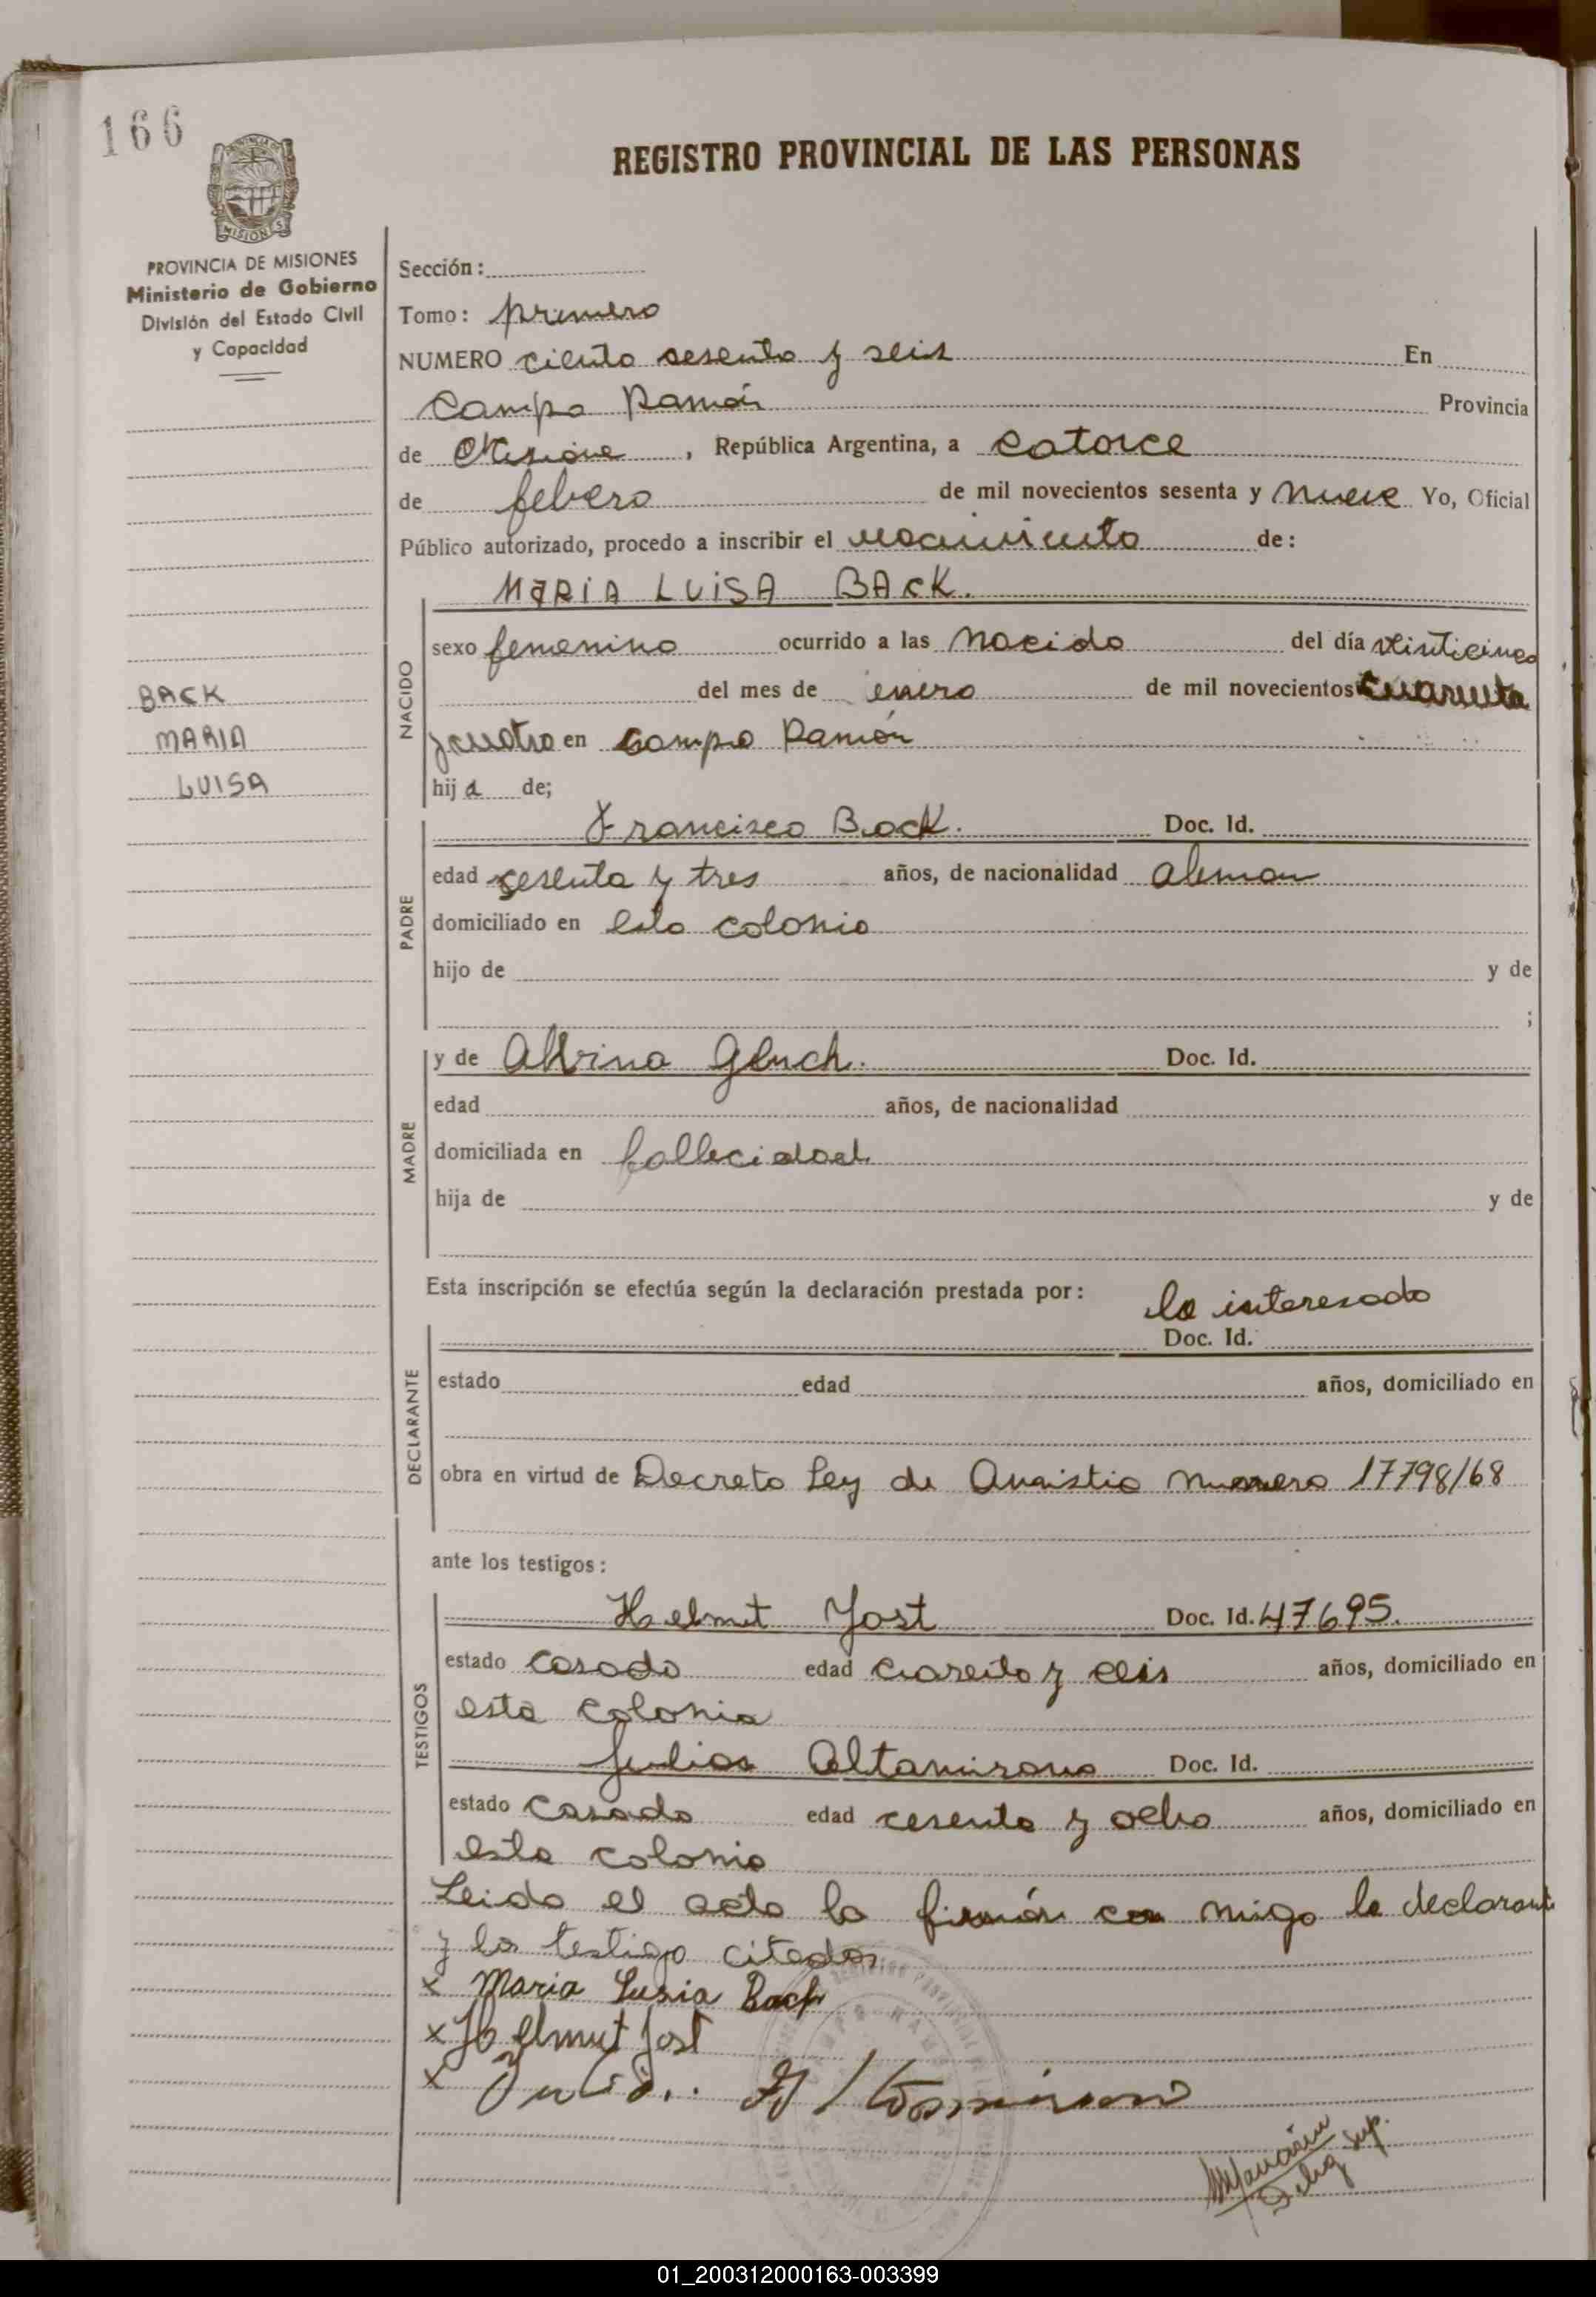 166
MISIONES
PROVINCIA DE MISIONES
Ministerio de Gobierno
División del Estado Civil
y Capacidad
REGISTRO PROVINCIAL DE LAS PERSONAS
Sección:
Tomo: primero
NUMERO ciento sesenta y seis En
Campo Ramón Provincia
de Misione, República Argentina, a catorce
de febrero de mil novecientos sesenta y nueve Yo, Oficial
Público autorizado, procedo a inscribir el nacimiento de:
MARIA LUISA BACK.
NACIDO
sexo femenino ocurrido a las nacido del día veinticinco
del mes de enero de mil novecientos cuarenta
y cuatro en Campo Ramón
hija de;
BACK
MARIA
LUISA
PADRE
Francisco Back. Doc. Id.
edad sesenta y tres años, de nacionalidad aleman
domiciliado en esta colonia
hijo de y de
;
MADRE
y de Doc. Id.
edad años, de nacionalidad
domiciliada en
hija de y de
Esta inscripción se efectúa según la declaración prestada por: la interesada
DECLARANTE
Doc. Id.
estado edad años, domiciliado en
obra en virtud de Decreto Ley de Amistia numero 17798/68
ante los testigos:
TESTIGOS
Helmut Jost Doc. Id. 47695.
estado casado edad y años, domiciliado en
esta colonia
Altamirano Doc. Id.
estado casado edad cesenta y ocho años, domiciliado en
esta colonia
Leida el acta la firmán con migo la declarant
y los testigo citados
x Maria Lusia Back
x Helmut Jost
x
Delég Sup.
01_200312000163-003399